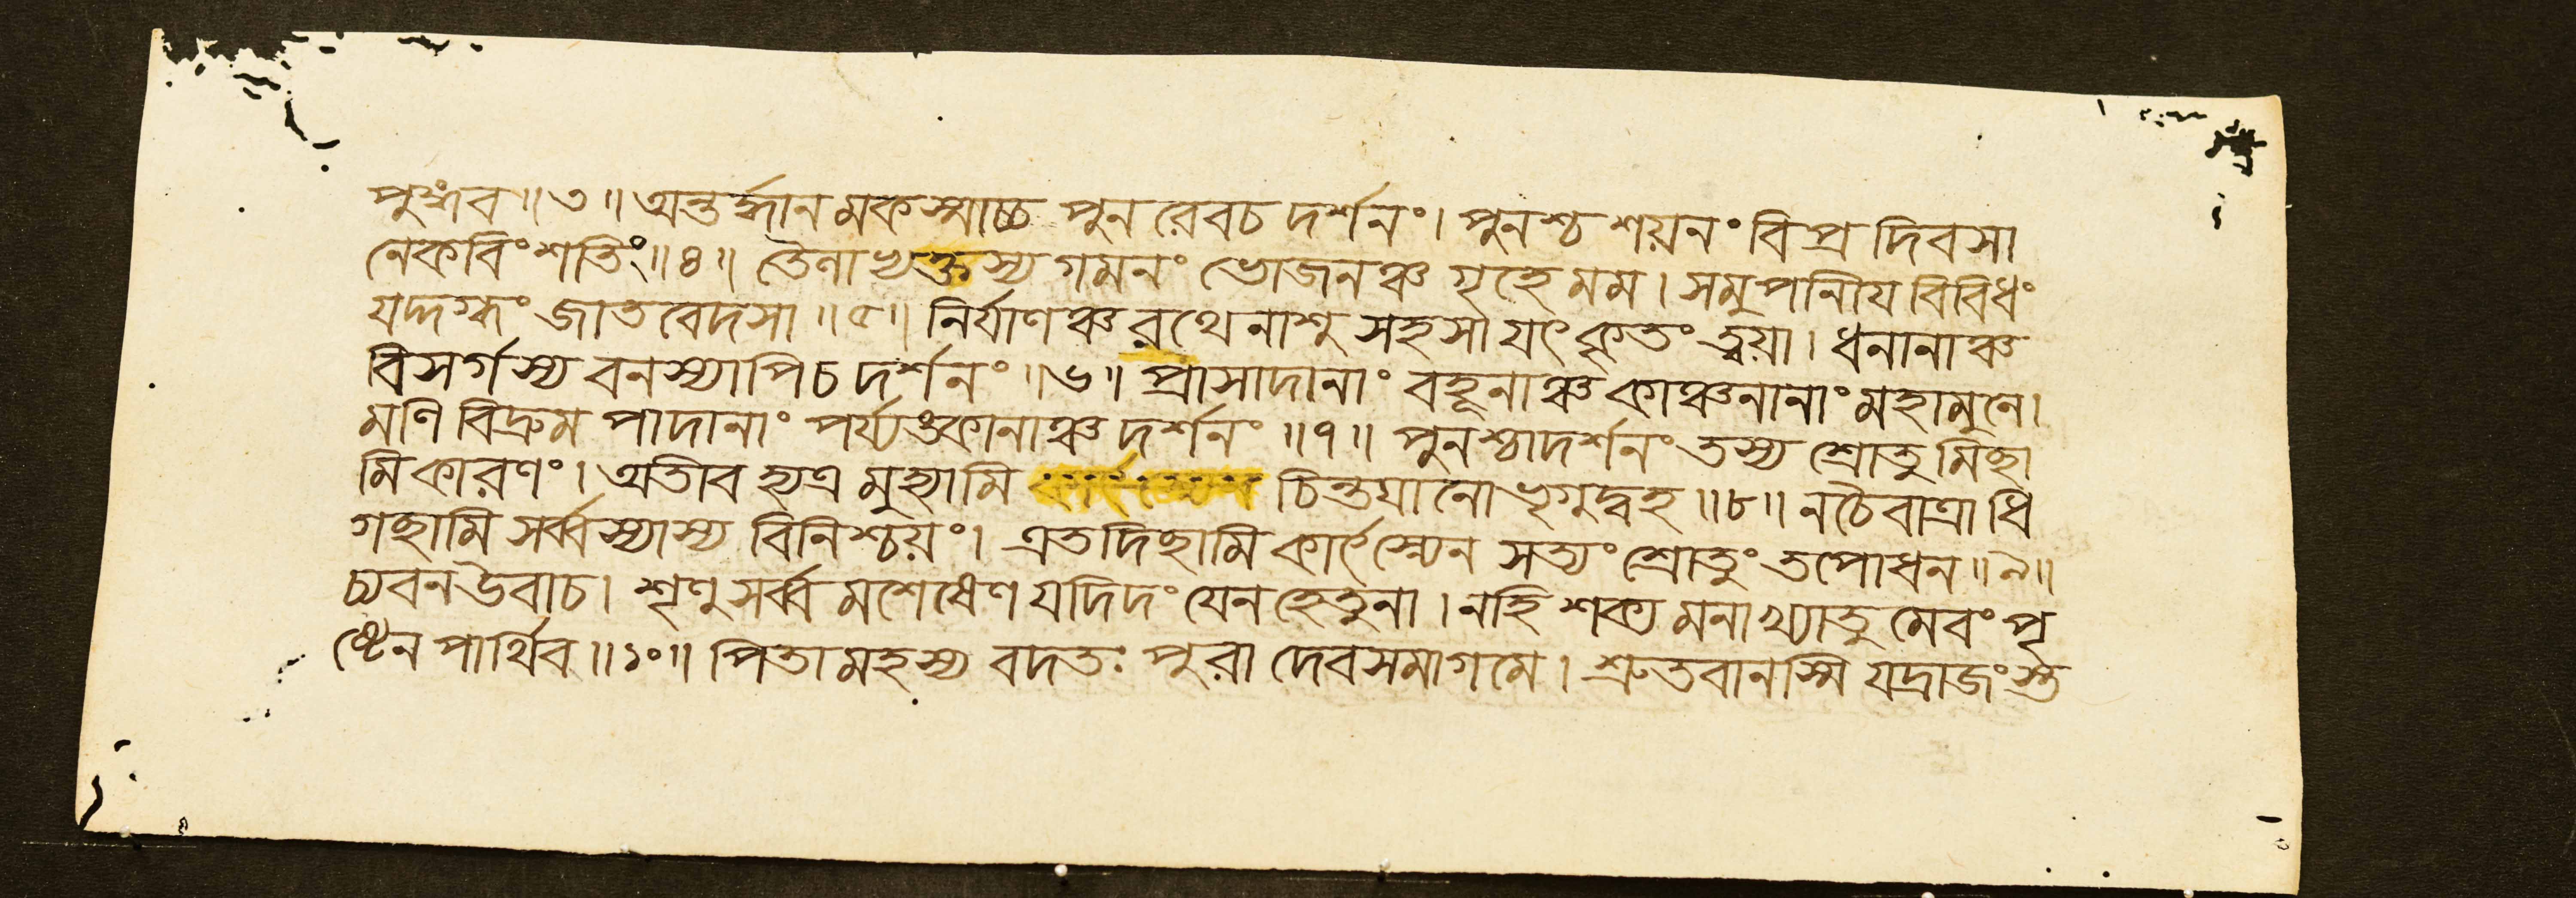 পুঙ্গব॥৩॥অন্তর্দ্ধানমকস্মাচ্চ পুনরেবচ দর্শনং। পুনশ্চ শয়নং বিপ্র দিবসা
নেকবিংশতিং॥৪॥ তৈলাভ্যক্তস্য গমনং ভোজনঞ্চ গৃহে মম। সমুপানীয বিবিধং
যদ্দগ্ধং জাতবেদসা॥৫॥ নির্যাণঞ্চ রথেনাশু সহসা যৎ কৃতং ত্বয়া। ধনানাঞ্চ
বিসর্গস্য বনস্যাপিচ দর্শনং॥৬॥ প্রাসাদানাং বহূনাঞ্চ কাঞ্চনানাং মহামুনে।
মণি বিদ্রুম পাদানাং পর্য্যঙ্কানাঞ্চ দর্শনং॥৭॥ পুনশ্চাদর্শনং তস্য শ্রোতুমিচ্ছা
মি কারণং। অতীব হ্যত্র মুহ্যামি চিন্তয়ানো ভৃগুদ্বহ॥৮॥ ন চৈবাত্রাধি
গচ্ছামি সর্ব্বস্যাস্য বিনিশ্চয়ং। এতদিচ্ছামি কার্ৎস্ন্যেন সত্যং শ্রোতুং তপোধন॥৯॥
চ্যবনউবাচ। শৃণু সর্ব্বমশেষেণ যদিদং যেন হেতুনা। নহি শক্যমনাখ্যাতুমেবং পৃ
ষ্টেন পার্থিব॥১০॥ পিতামহস্য বদতঃ পুরা দেবসমাগমে। শ্রুতবানস্মি যদ্রাজংস্ত